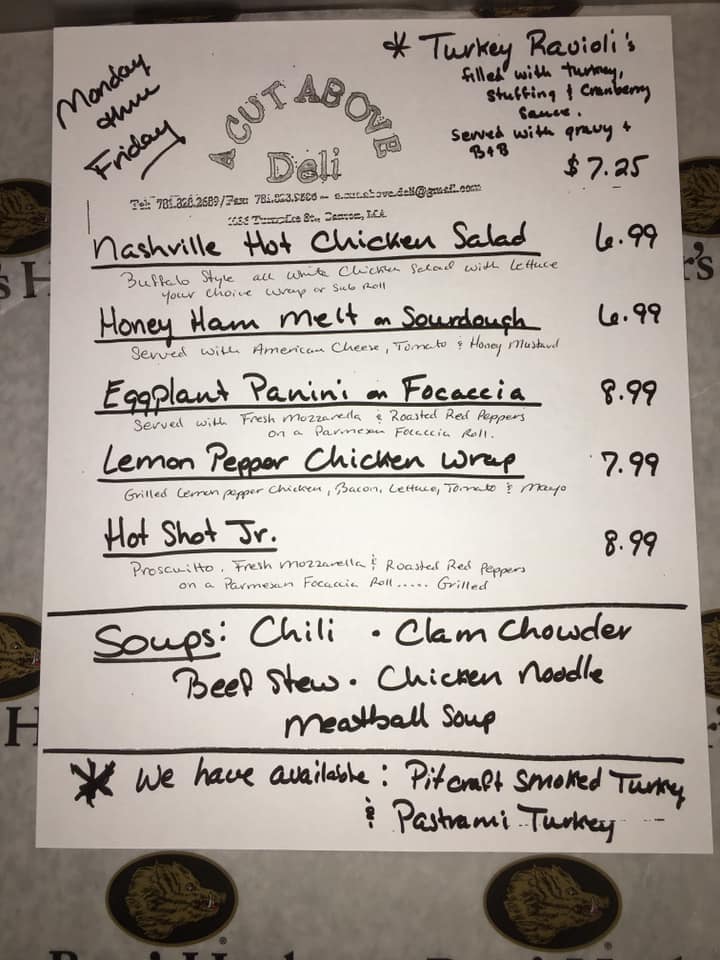 Monday
thru
Friday
A CUT ABOVE
Deli
* Turkey Ravioli's
filled with turkey,
stuffing & Cranberry
Sauce.
Served with gravy +
B+B
$7.25
Tel: 781.828.2689/Fax:
Nashville Hot Chicken Salad 6.99
Buffalo Style all white Chicken Salad with Lettuce
your choice wrap or sub Roll
Honey Ham Melt on Sourdough 6.99
Served with American Cheese, Tomato & Honey Mustard
Eggplant Panini on Focaccia 8.99
Served with Fresh Mozzarella & Roasted Red Peppers
on a Parmesan Focaccia Roll.
Lemon Pepper Chicken Wrap 7.99
Grilled Lemon pepper Chicken, Bacon, Lettuce, Tomato & Mayo
Hot Shot Jr. 8.99
Proscuitto, Fresh Mozzarella & Roasted Red Peppers
on a Parmesan Focaccia Roll..... Grilled
Soups: Chili • Clam Chowder
Beef Stew • Chicken Noodle
Meatball Soup
* We have available: Pitcraft Smoked Turkey
& Pastrami Turkey